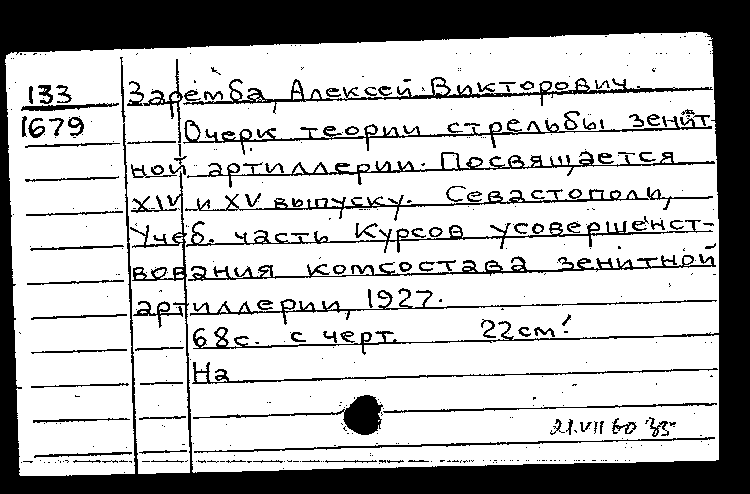 133 Заремба, Алексей Викторович.
1679 Очерк теории стрельбы зенит-
ной артиллерии. Посвящается
XIV и XV выпуску. Севастополь,
Учеб. часть Курсов усовершенст-
вования комсостава зенитной
артиллерии, 1927.
68с. с черт. 22см.
На
21.VII 60